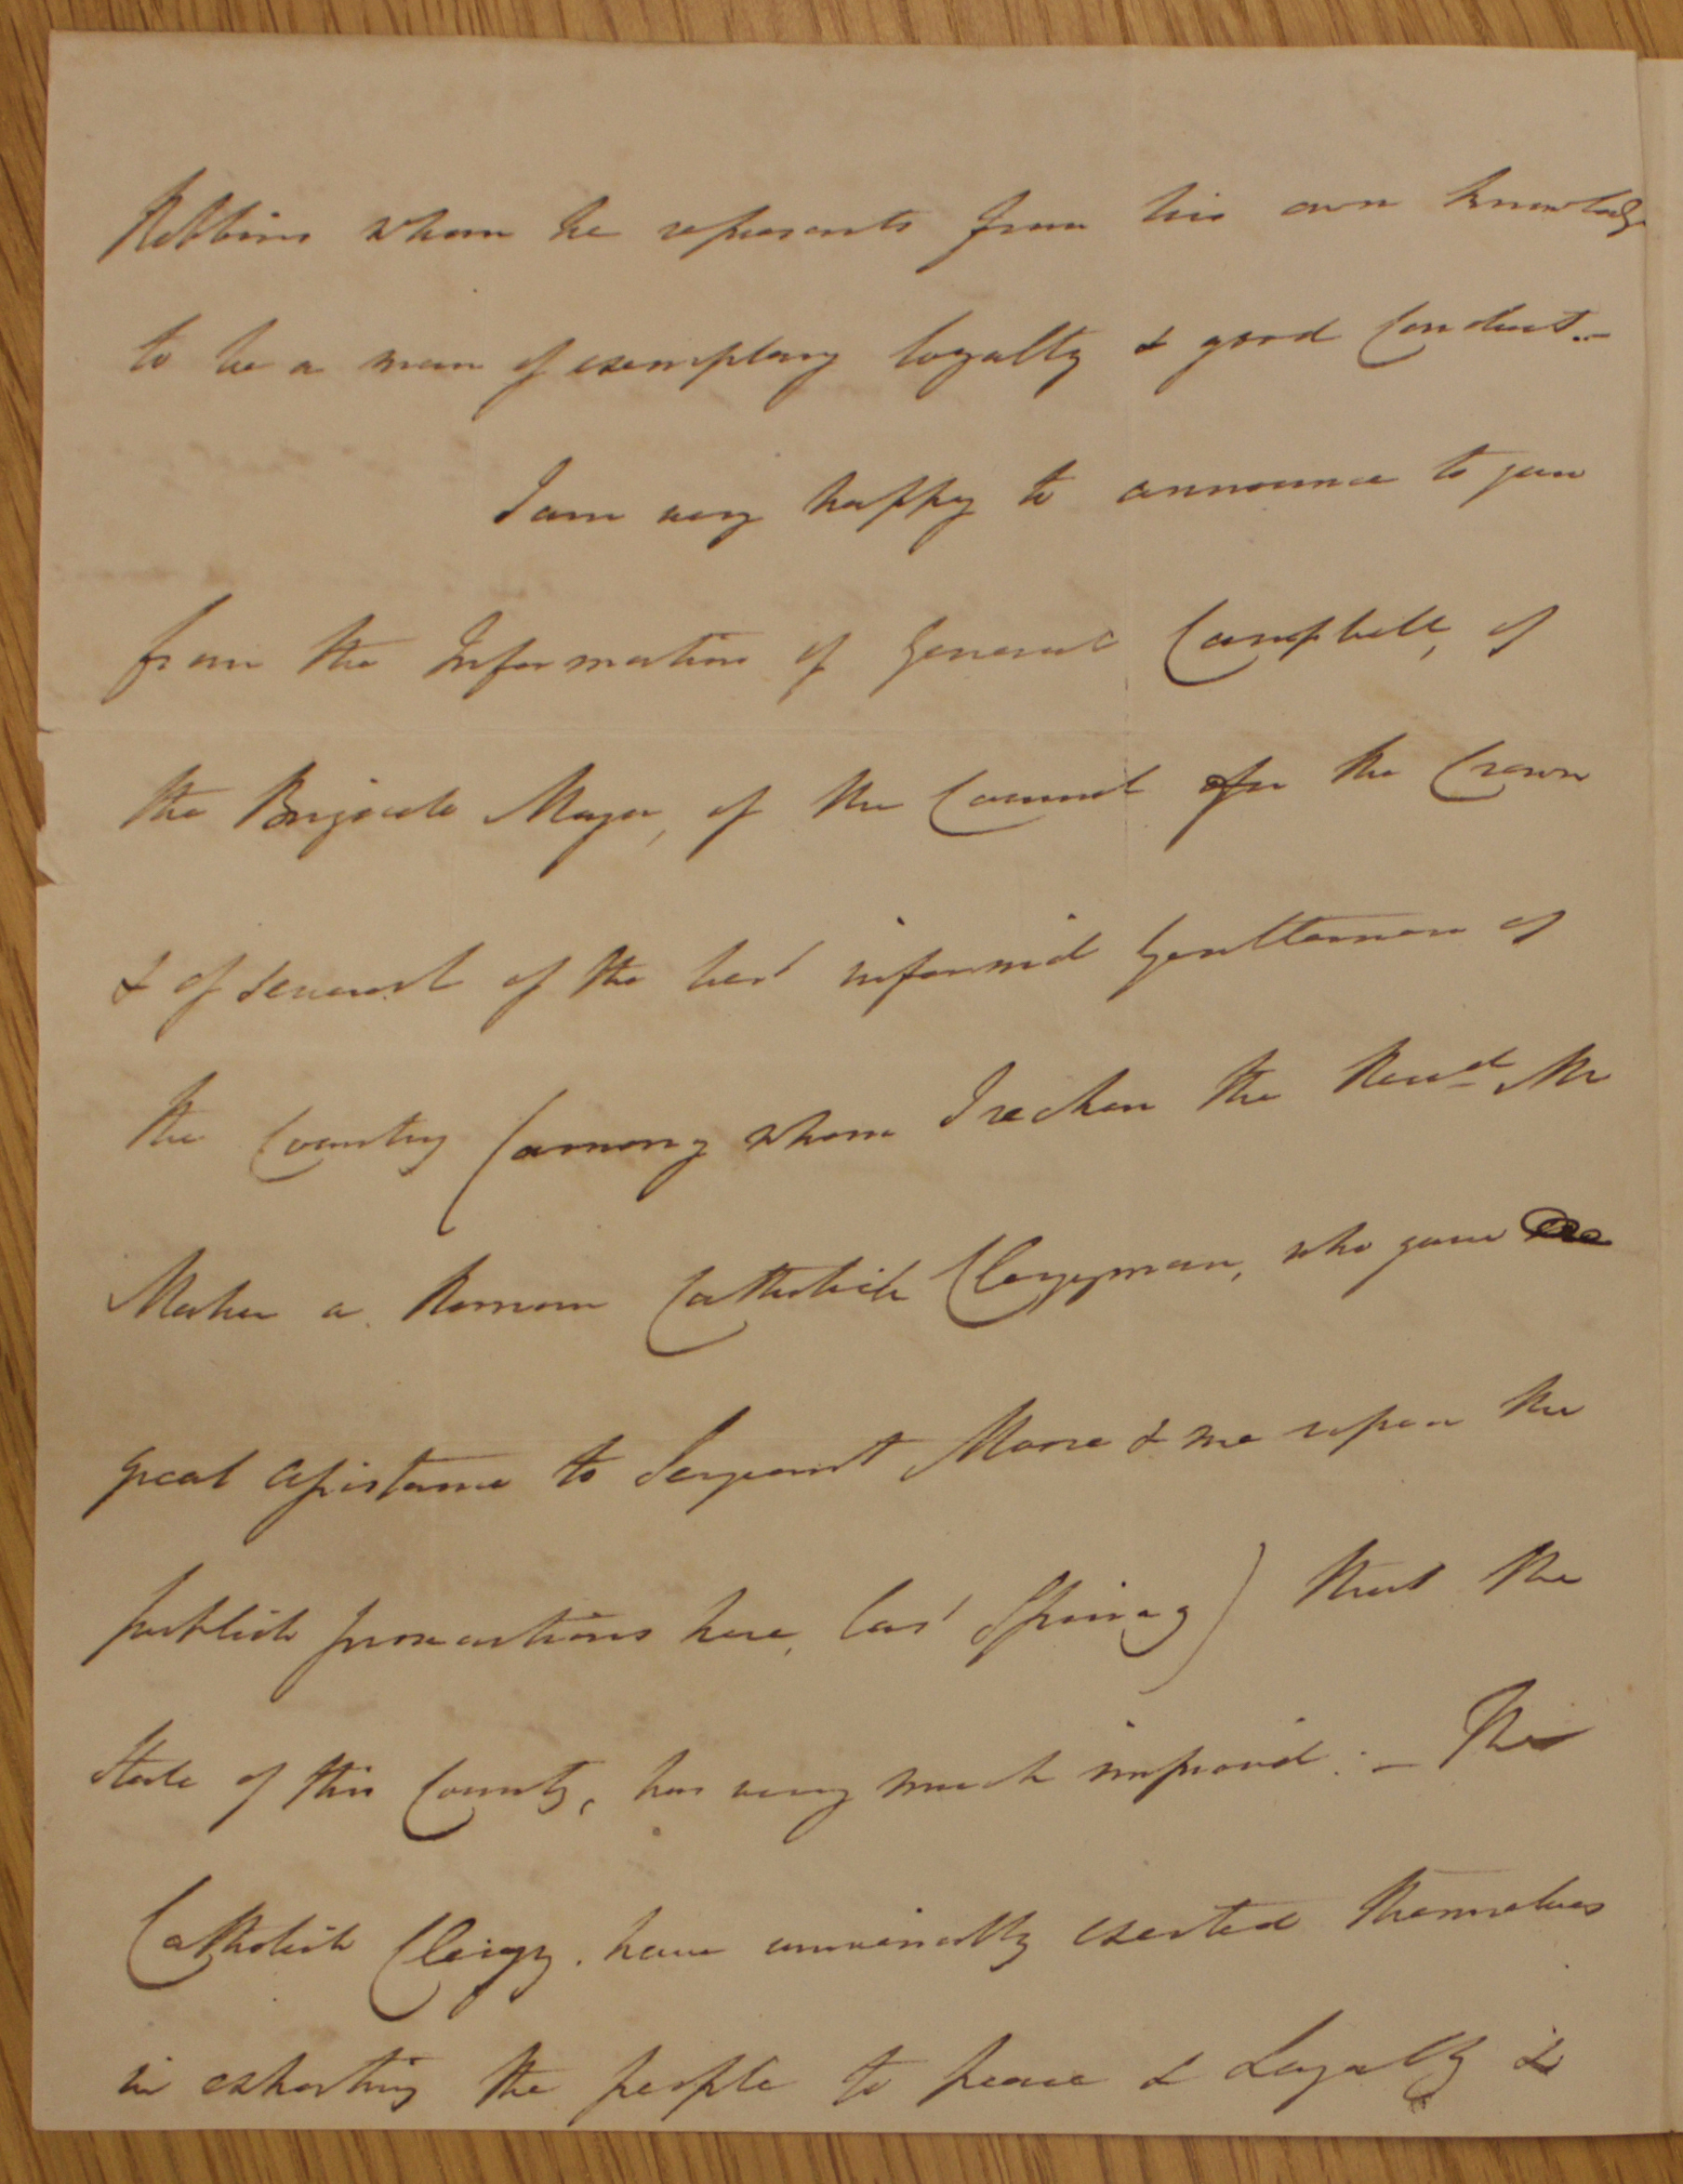 Robbins whom he represents from his own knowledge
to be a man of exemplary loyalty & good Conduct.—
I am very happy to announce to you
from the Information of General Campbell, of
the Brigade Major, of the Counsel for the Crown
& of several of the best informed Gentlemen of
the Country (among whom I reckon the Revd Mr
Maher a Roman Catholick Clergyman, who gave
great assistance to Sergeant Moore & me upon the
publick prosecutions here, last Spring) that the
State of this County, has very much improved. — The
Catholick Clergy. have universally exerted themselves
in exhorting the people to peace & Loyalty &